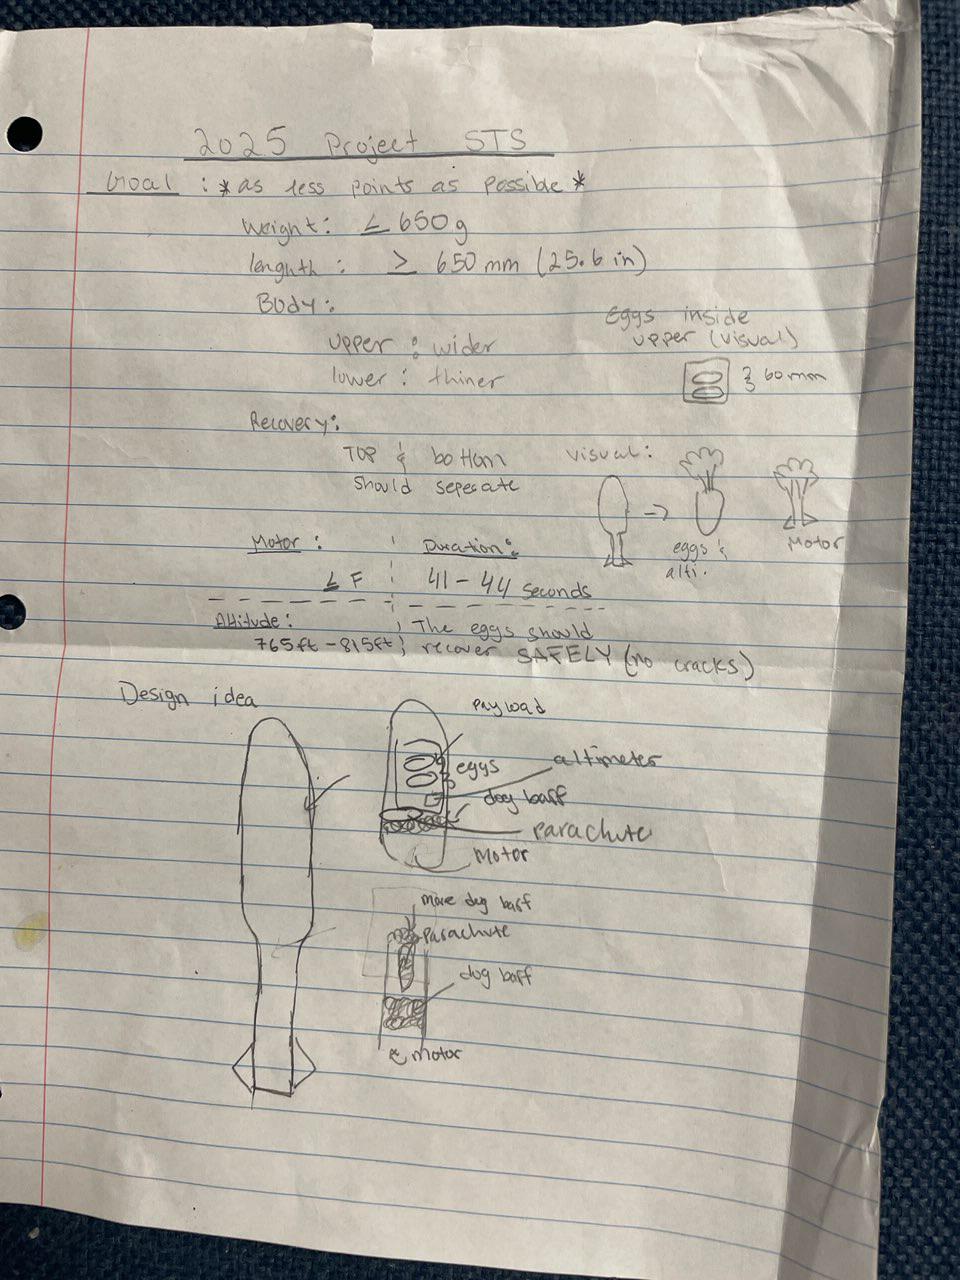 2025 Project STS
Goal : * as less points as possible *
Weight: ≤ 650g
lenghth : ≥ 650 mm (25.6 in)
Body:
Upper : wider
lower : thiner
Eggs inside
upper (visual)
60mm
Recovery:
Top & bottom
should seperate
visual:
→
eggs &
alti.
Motor
Motor :
Duration:
≤ F
41 - 44 seconds
Altitude:
765ft - 815ft
The eggs should
recover SAFELY (no cracks)
Design idea
payload
eggs
altimeter
dog barf
parachute
Motor
more dog barf
parachute
dog barf
motor